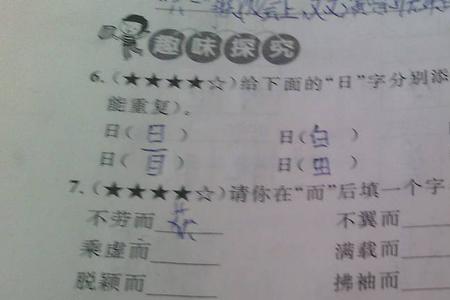 趣味探究
6.(★★★★☆)给下面的“日”字分别添
能重复)。
日( 日 ) 日(白 )
日( 目 ) 日( 田 )
7.(★★★★☆)请你在“而”后填一个字
不劳而 获 不翼而
乘虚而 满载而
脱颖而 拂袖而